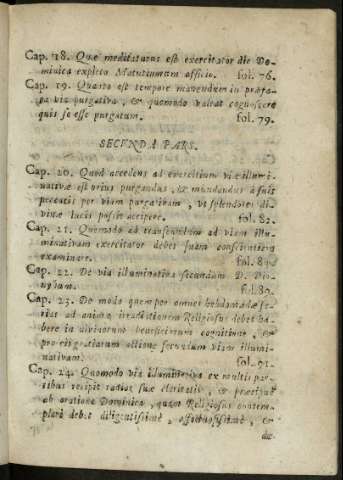 Cap. 18. Quæ meditaturus est exercitator die Do-
minica expleto Matutinarum officio. fol. 76.
Cap. 19. Quanto est tempore manendum in præfa-
ta via purgativa, & quomodo valeat cognoscere
quis se esse purgatum. fol. 79.
SECVNDA PARS.
Cap. 20. Quod accedens ad exercitium viæ illumi-
nativæ est prius purgandus, & mundandus à suis
peccatis per viam purgativam, vt splendores di-
vinæ lucis possit accipere. fol. 82.
Cap. 21. Quomodo ad transeundum ad viam illu-
minativam exercitator debet suam conscientiam
examinare. fol.
Cap. 22. De via illuminativa secundum D. Dio-
nysium. fol.
Cap. 23. De modo quem per omnes hebdomadæ fe-
rias ad animæ irradiationem Religiosus debet ha-
bere in divinorum beneficiorum cognitione, &
pro eis gratiarum actione secundum viam illumi-
nativam. fol. 91.
Cap. 24. Quomodo via illuminativa ex multis par-
tibus recipit radios suæ claritatis, & præcipuè
ab oratione Dominica, quam Religiosus contem-
plari debet diligentissimè, affectuosissimè, &
de-